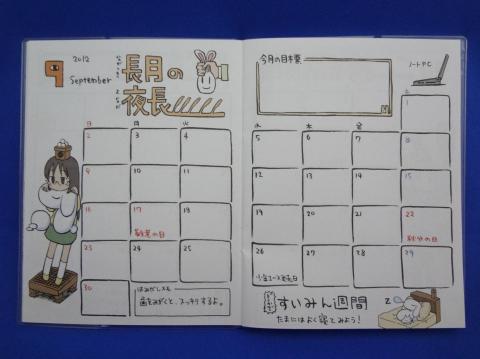 9
2012
September
長月の
夜長
ながつき
よなが
今月の目標
ノートPC
日 月 火
2 3 4
9 10 11
16 17 18
敬老の日
23 24 25
30
歯をみがくと、スッキリするよ。
水 木 金 土
1
5 6 7 8
12 13 14 15
19 20 21 22
秋分の日
26 27 28 29
すいみん週間
たまにはよく寝てみよう!
Z